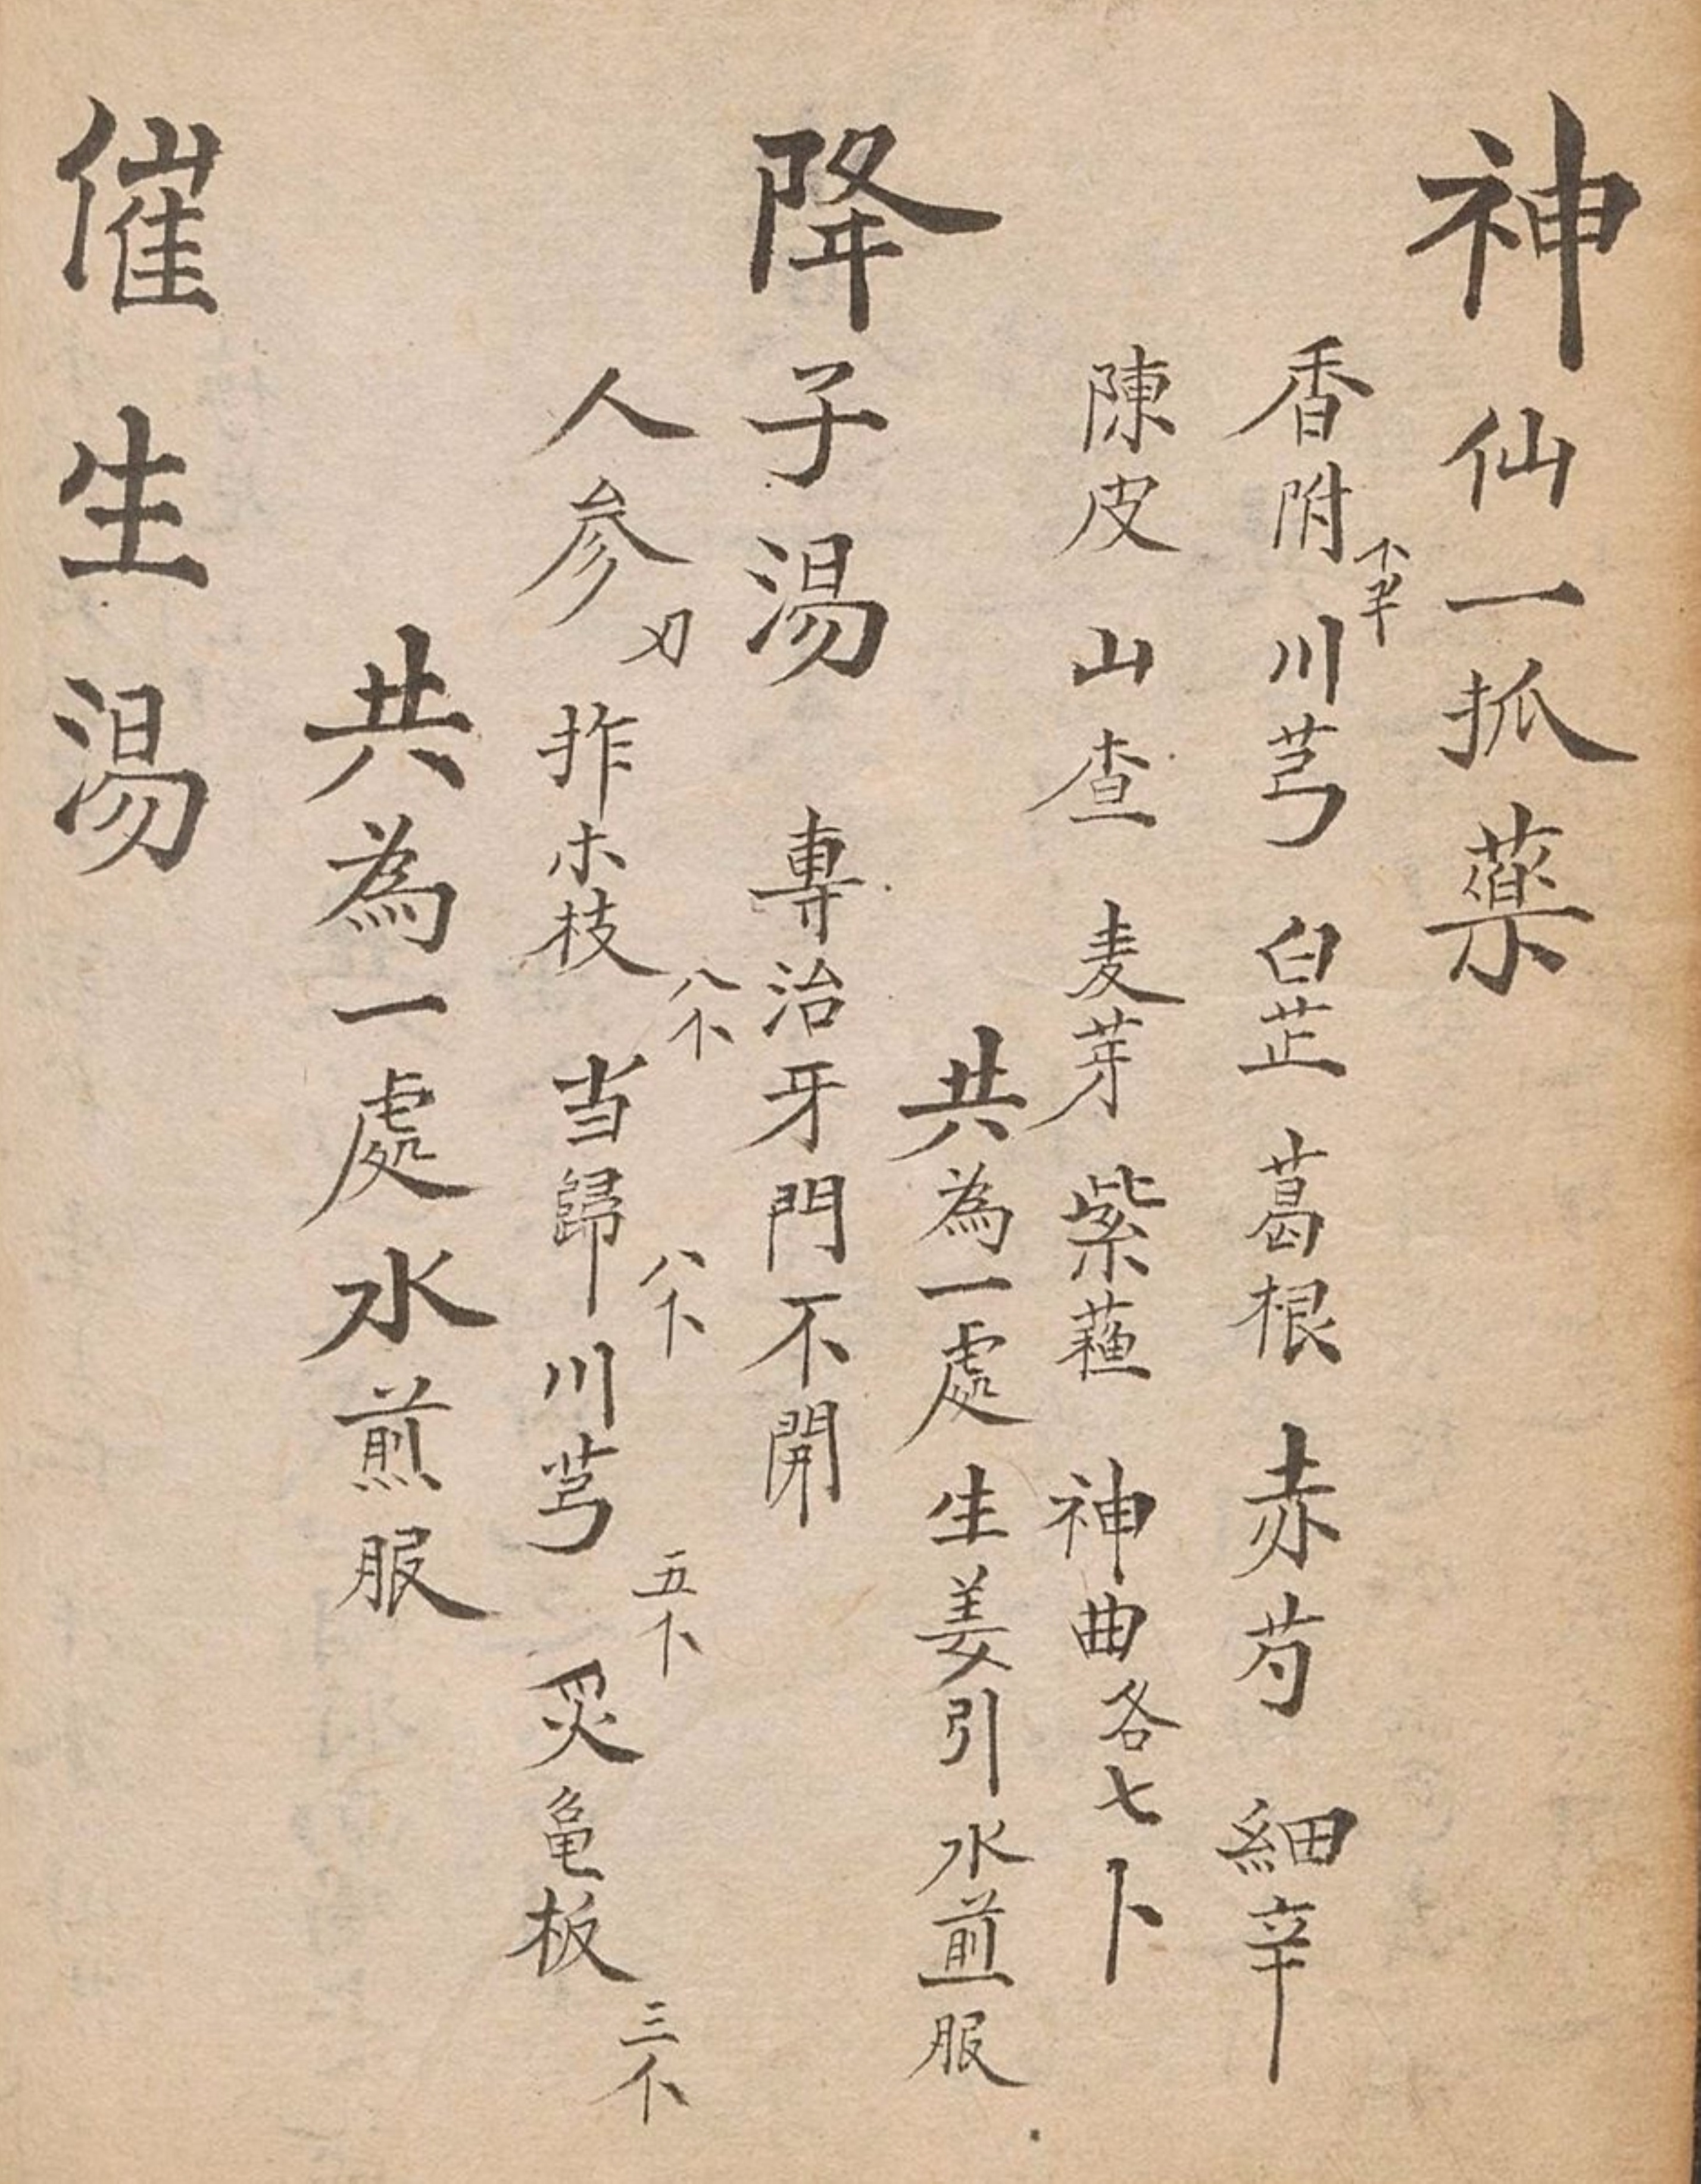 神仙一抓藥
香附 川芎 白芷 葛根 赤芍 細辛
陳皮 山查 麦芽 紫蘓 神曲各七卜
共為一處生姜引水煎服
降子湯 專治牙門不開
人参 柞木枝 八卜 当歸 八卜 川芎 五卜 炙亀板 三卜
共為一處水煎服
催生湯